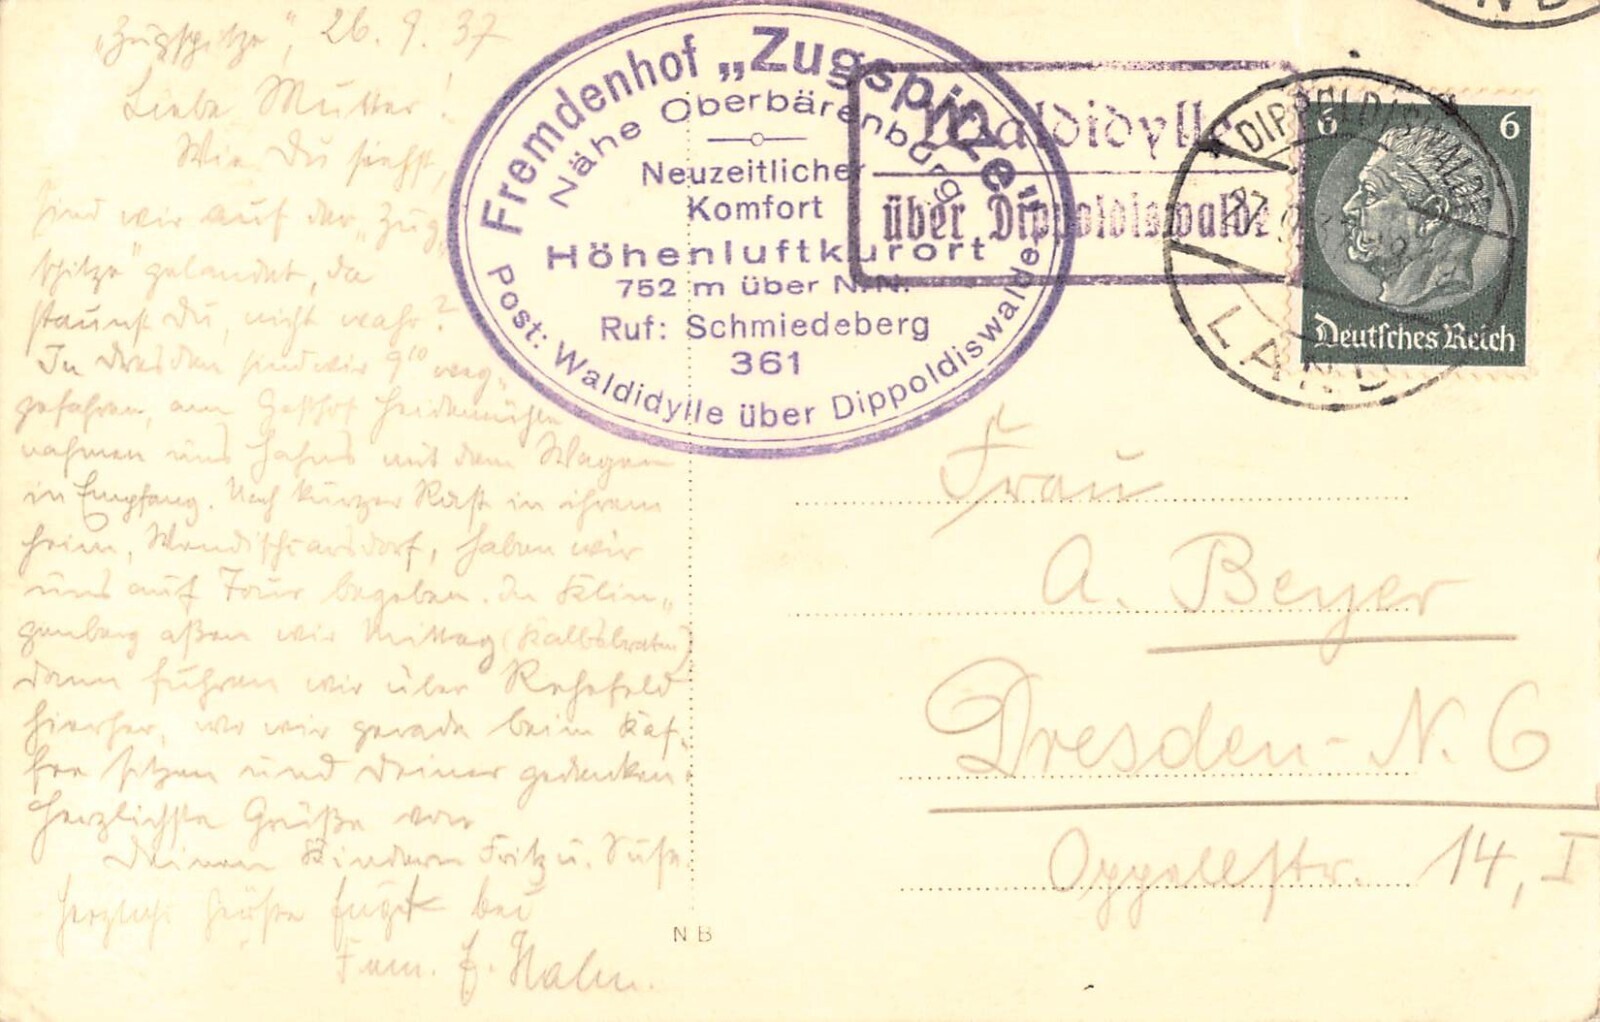 „Zugspitze“, 26. 9. 37
Liebe Mutter!
Wie Du siehst,
sind wir auf der „Zug„
spitze“ gelandet, da
staunst Du, nicht wahr?
In Dresden sind wir 9¹⁰ weg„
gefahren, am Gasthof Heidemühle
nahmen uns Hahns mit dem Wagen
in Empfang. Nach kurzer Rast in ihrem
Heim, Wendischcarsdorf, haben wir
uns auf Tour begeben. In Klin„
genberg aßen wir Mittag (Kalbsbraten)
dann fuhren wir über Rehefeld
hierher, wo wir gerade beim Kaf„
fee sitzen und Deiner gedenken.
Herzlichste Grüße von
Deinen Kindern Fritz u. Suse.
Herzliche Grüße fügt bei
Fam. Hahn.
Fremdenhof „Zugspitze“
Nähe Oberbärenburg
Neuzeitlicher
Komfort
Höhenluftkurort
752 m über N.N.
Ruf: Schmiedeberg
361
Post: Waldidylle über Dippoldiswalde
Waldidylle
über Dippoldiswalde
DIPPOLDISWALDE
LAND
6 6
Deutsches Reich
Frau
A. Beyer
Dresden-N. 6
Oppellstr. 14, I
N B